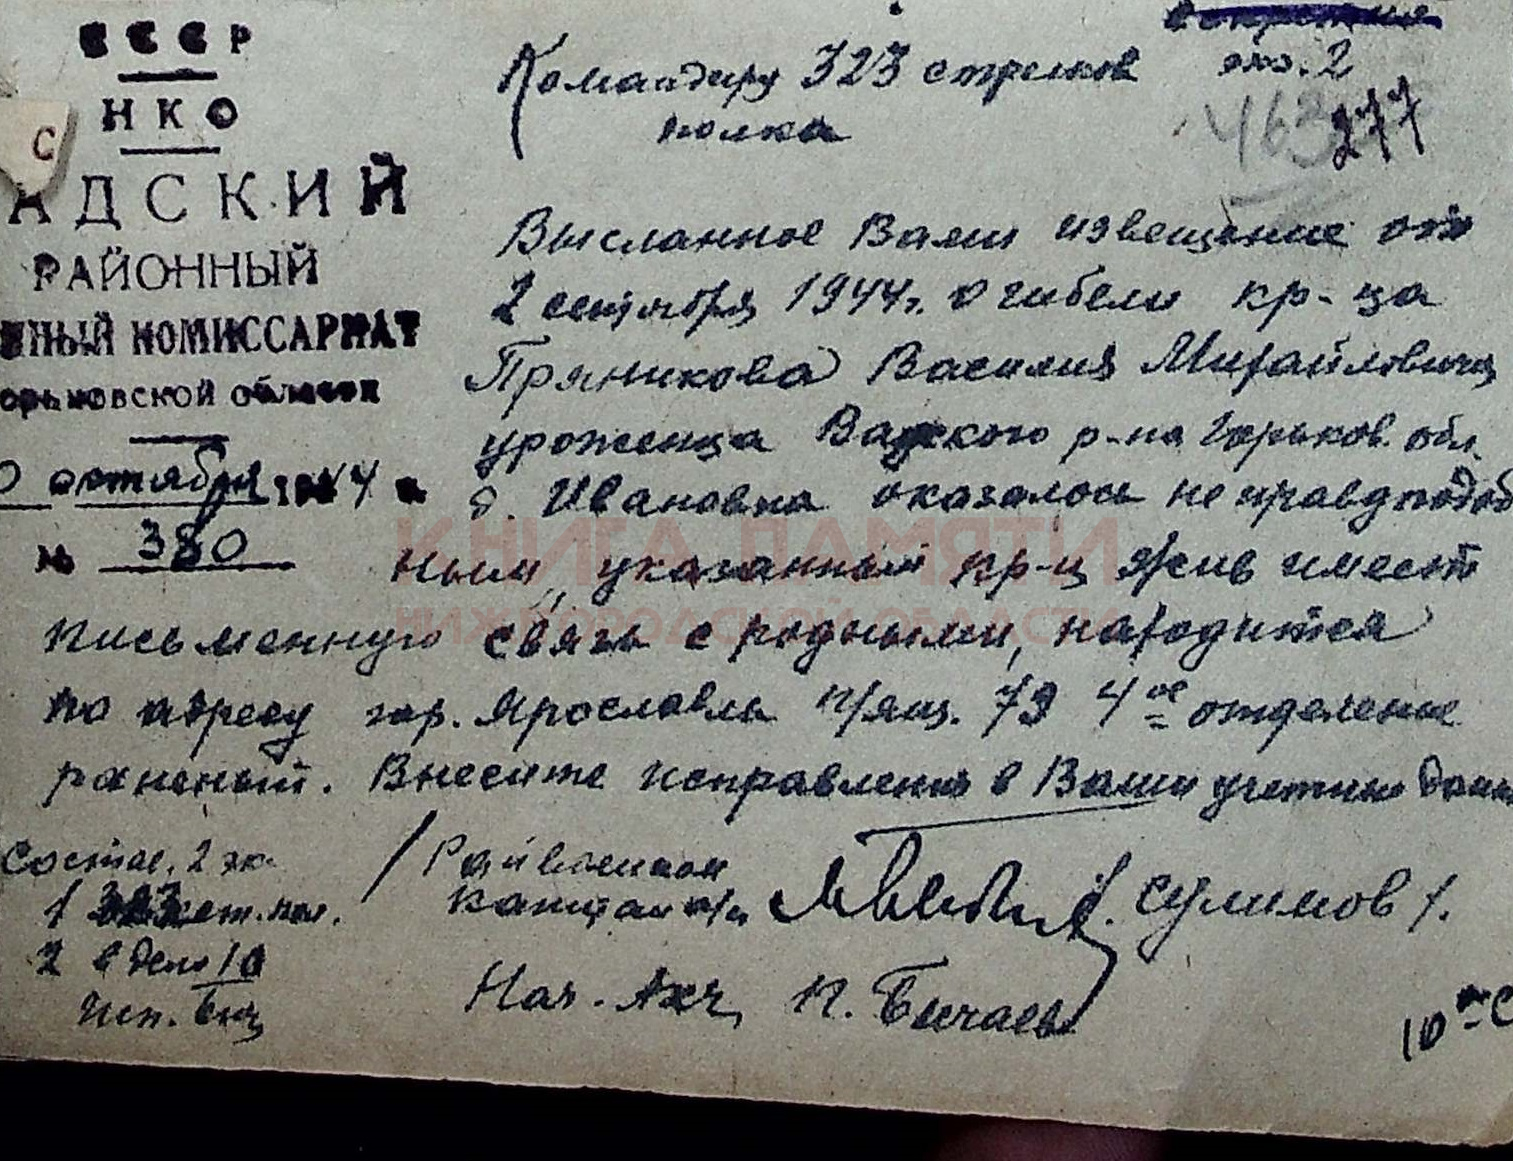 СССР
НКО
АДСКИЙ
РАЙОННЫЙ
ННЫЙ КОМИССАРИАТ
орьковской области
0 октября 1944 г
№ 380
экз. 2
463
277
Командиру 323 стрелков
полка
Высланное Вами извещение от
2 сентября 1944г. о гибели кр-ца
Пряникова Василия Михайловича
уроженца Вадского р-на Горьков. обл.
д. Ивановка оказалось не правдподоб
ным, указанный кр-ц жив имеет
письменную связь с родными, находится
по адресу гор. Ярославль п/ящ. 79 4ое отделение
раненый. Внесите исправления в Ваши учетные данн
Состав. 2 эк.
1 323 ст. пол.
2 в дело 10
исп.
/ Райвоенком
капитан а/с
/. Сулимов /.
Нач.
КНИГА ПАМЯТИ
НИЖЕГОРОДСКОЙ ОБЛАСТИ